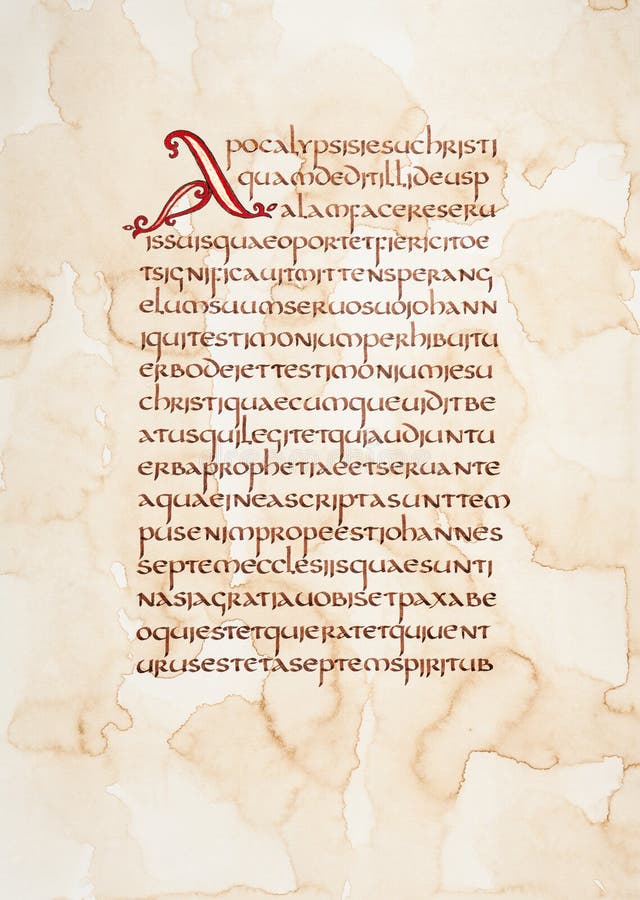 Apocalypsisiesuchristi
quamdeditillideusp
alamfacereseru
issuisquaeoportetfiericitoe
tsignificauitmittensperang
elumsuumseruosuojohann
iquitestimoniumperhibuitu
erbodeiettestimoniumiesu
christiquaecumqueuiditbe
atusquilegitetquiaudiuntu
erbaprophetiaeetseruante
aquaeineascriptasunttem
pusenimpropeestiohannes
septemecclesiisquaesunti
nasiagratiauobisetpaxabe
oquiestetquieratetquiuent
urusestetaseptemspiritub